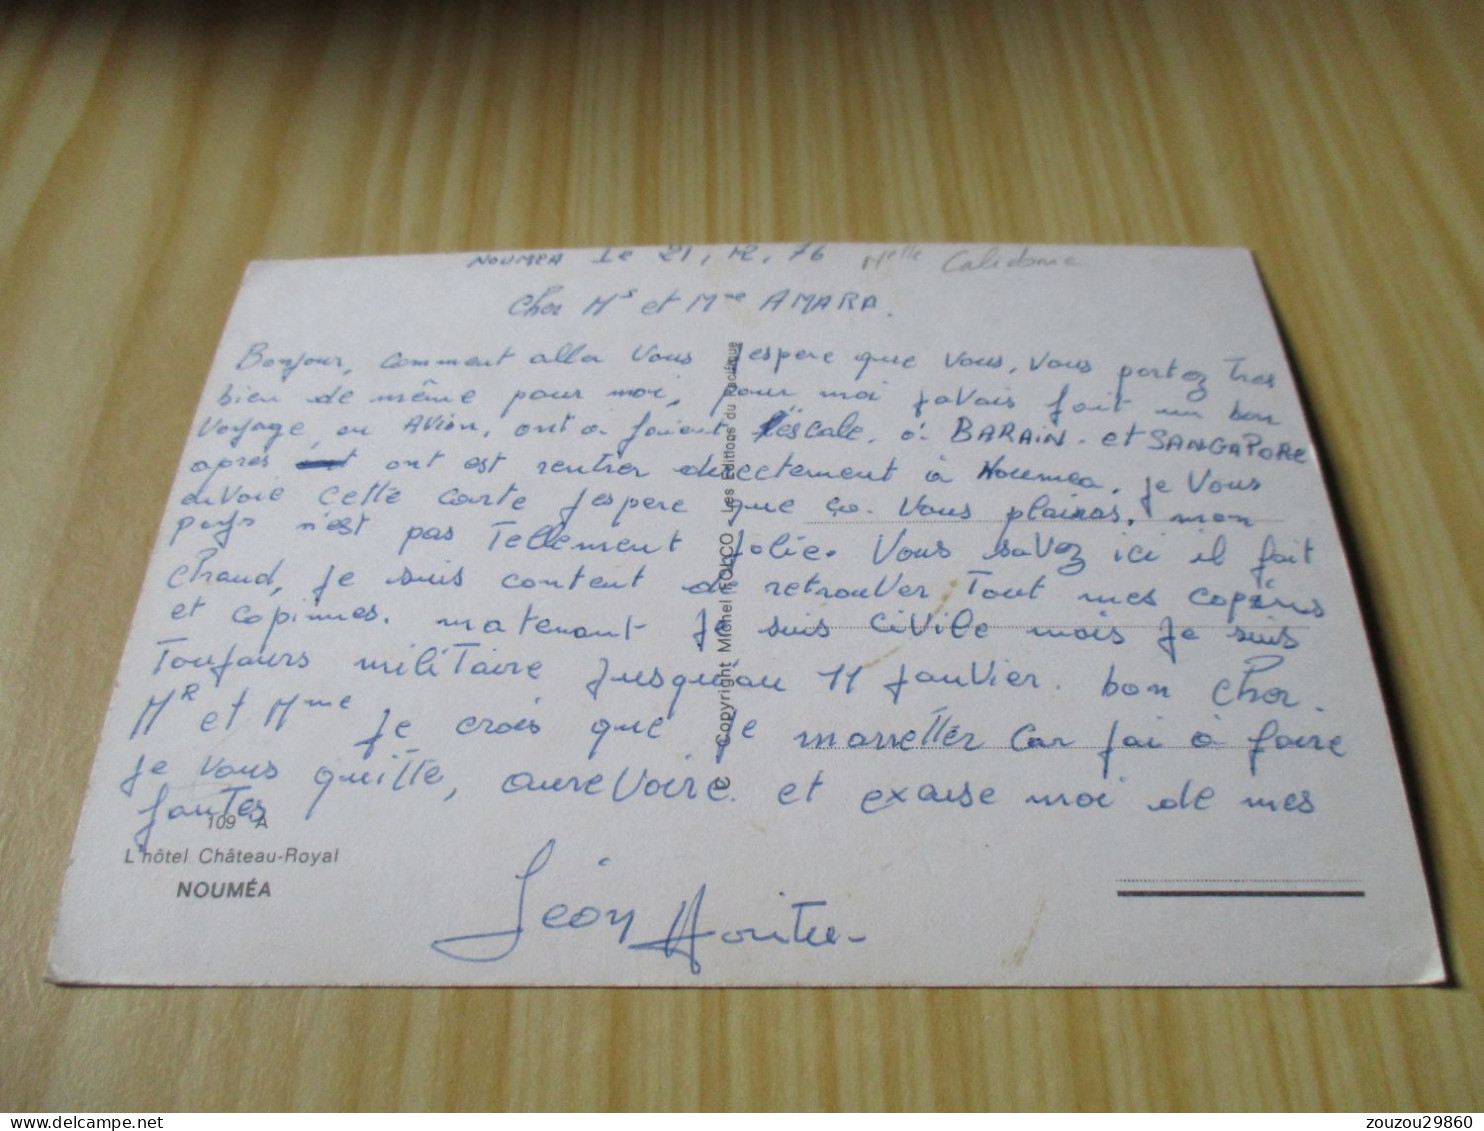 NOUMEA le 21, 12, 76 Nelle Caledonie
Cher Mr et Mme AMARA.
Bonjour, comment alla vous Jespere que vous, vous portez Tres
bien de même pour moi, pour moi javais fait un bon
voyage, en AVion, ont a faient l'éscale. à BARAIN. et SANGAPORE
après ont est rentrer directement à Nouméa. je Vous
envoie cette carte Jespere que ça Vous plairas. mon
pays n'est pas Tellement Jolie. Vous savez ici il fait
chaud, je suis content de retrouver Tout mes copins
et copinnes. matenant Je suis civile mais je suis
Toujours miliTaire Jusqu'au 11 Janvier. bon cher.
MR et Mme Je crois que je marretter car jai à faire
je vous quitte, aurevoire. et excuse moi de mes
fautes
Léon
109 A
L'hôtel Château-Royal
NOUMÉA
© Copyright Michel FOLCO - Les Editions du Pacifique
zouzou29860